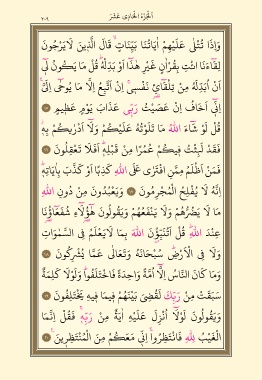 اَلْجُزْءُ الْحَادِى عَشَرَ ٢٠٩
وَاِذَا تُتْلٰى عَلَيْهِمْ اٰيَاتُنَا بَيِّنَاتٍ قَالَ الَّذِينَ لَا يَرْجُونَ
لِقَٓاءَنَا ائْتِ بِقُرْاٰنٍ غَيْرِ هٰذَٓا اَوْ بَدِّلْهُ قُلْ مَا يَكُونُ لِٓى
اَنْ اُبَدِّلَهُ مِنْ تِلْقَٓائِ۬ نَفْسِى اِنْ اَتَّبِعُ اِلَّا مَا يُوحٰٓى اِلَىَّ
اِنِّٓى اَخَافُ اِنْ عَصَيْتُ رَبِّى عَذَابَ يَوْمٍ عَظِيمٍ
قُلْ لَوْ شَٓاءَ اللّٰهُ مَا تَلَوْتُهُ عَلَيْكُمْ وَلَٓا اَدْرٰيكُمْ بِهِ
فَقَدْ لَبِثْتُ فِيكُمْ عُمُرًا مِنْ قَبْلِهِ اَفَلَا تَعْقِلُونَ
فَمَنْ اَظْلَمُ مِمَّنِ افْتَرٰى عَلَى اللّٰهِ كَذِبًا اَوْ كَذَّبَ بِاٰيَاتِهِ
اِنَّهُ لَا يُفْلِحُ الْمُجْرِمُونَ وَيَعْبُدُونَ مِنْ دُونِ اللّٰهِ
مَا لَا يَضُرُّهُمْ وَلَا يَنْفَعُهُمْ وَيَقُولُونَ هٰٓؤُ۬لَٓاءِ شُفَعَٓاؤُ۬نَا
عِنْدَ اللّٰهِ قُلْ اَتُنَبِّؤُ۫نَ اللّٰهَ بِمَا لَا يَعْلَمُ فِى السَّمٰوَاتِ
وَلَا فِى الْاَرْضِ سُبْحَانَهُ وَتَعَالٰى عَمَّا يُشْرِكُونَ
وَمَا كَانَ النَّاسُ اِلَّٓا اُمَّةً وَاحِدَةً فَاخْتَلَفُوا وَلَوْلَا كَلِمَةٌ
سَبَقَتْ مِنْ رَبِّكَ لَقُضِىَ بَيْنَهُمْ فِيمَا فِيهِ يَخْتَلِفُونَ
وَيَقُولُونَ لَوْلَٓا اُنْزِلَ عَلَيْهِ اٰيَةٌ مِنْ رَبِّهِ فَقُلْ اِنَّمَا
الْغَيْبُ لِلّٰهِ فَانْتَظِرُوا اِنِّى مَعَكُمْ مِنَ الْمُنْتَظِرِينَ